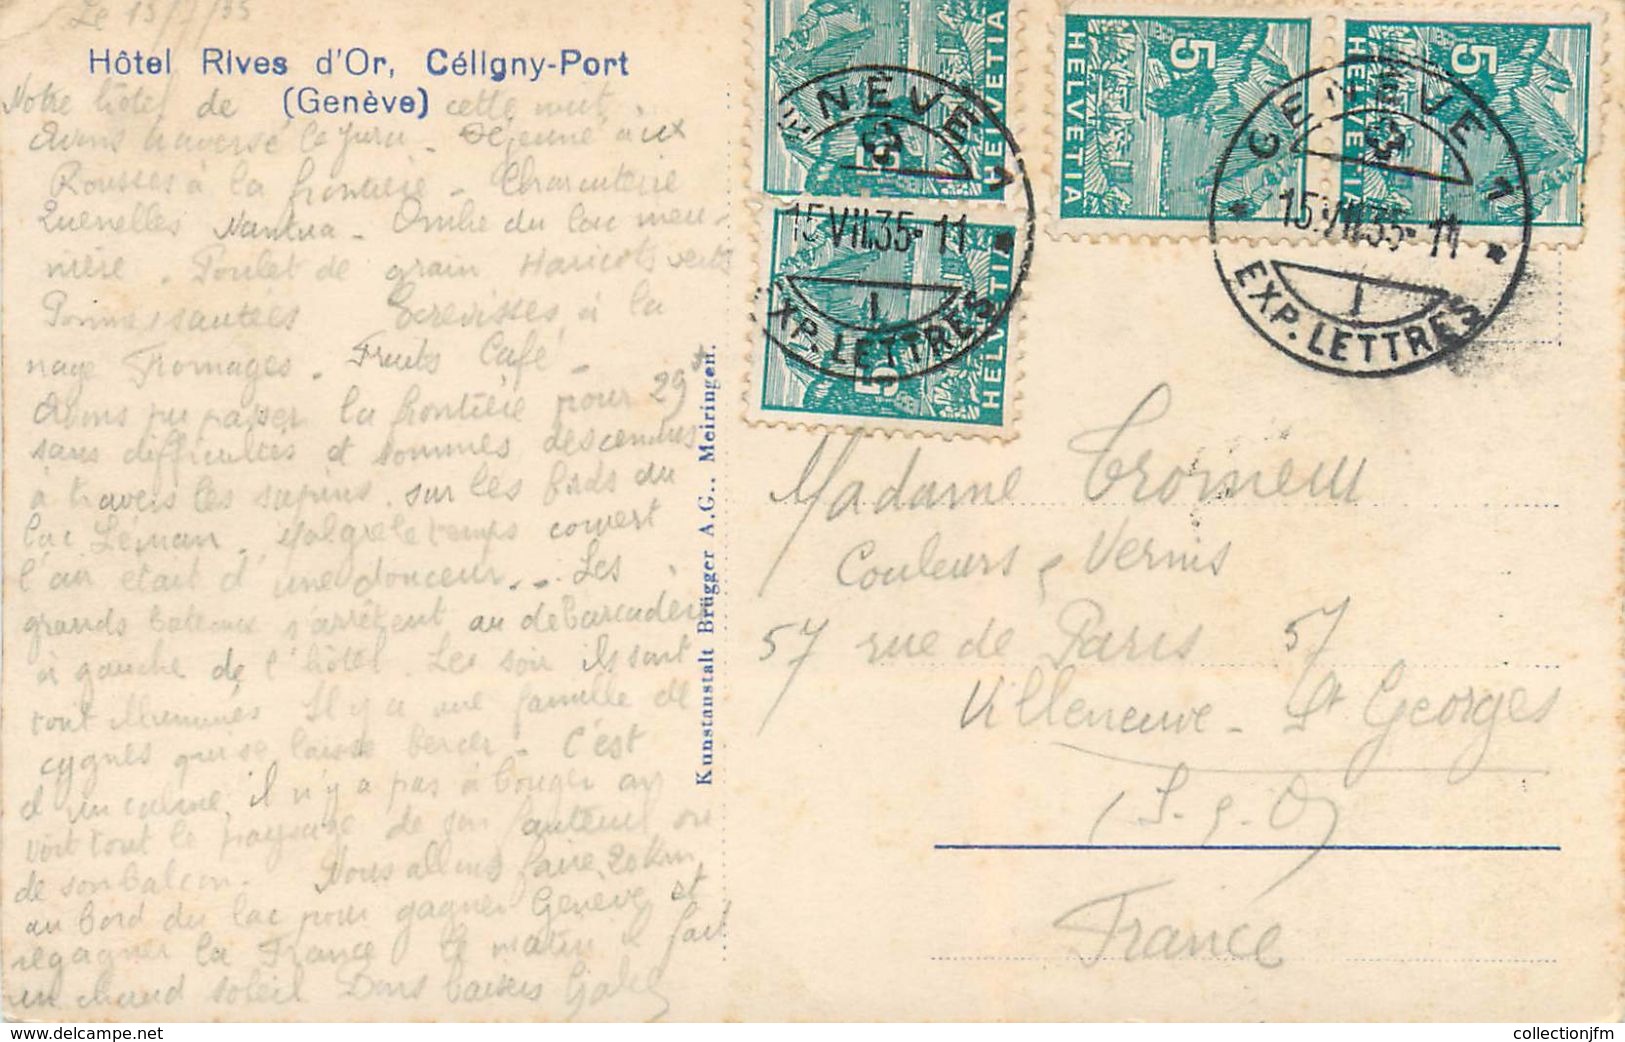 Le 15/7/35
Hôtel Rives d'Or, Céligny-Port
(Genève)
Notre hôtel de cette nuit.
Avons traversé le Jura - Déjeuné aux
Rousses à la frontière - Charcuterie
Quenelles Nantua - Ombre du lac meu-
nière. Poulet de grain Haricots verts
Pommes sautées Ecrevisses à la
nage Fromages. Fruits Café -
Avons pu passer la frontière pour 29
sans difficultés et sommes descendus
à travers les sapins sur les bords du
lac Léman. Malgré le temps couvert
l'air était d'une douceur.. Les
grands bateaux s'arrêtent au débarcadère
à gauche de l'hôtel. Les soir ils sont
tout illuminés Il y a une famille de
cygnes qui se laisse bercer - C'est
d'un calme, il n'y a pas à bouger on
voit tout le paysage de son fauteuil ou
de son balcon. Nous allons faire 20 Km
au bord du lac pour gagner Genève et
regagner la France Ce matin il fait
un chaud soleil Bons baisers
Kunstanstalt Brügger A.G., Meiringen.
HELVETIA 5
HELVETIA 5
HELVETIA 5
HELVETIA 5
GENÈVE 1
15.VII.35-11
EXP. LETTRES
GENÈVE 1
15.VII.35-11
EXP. LETTRES
Madame Tromeur
Couleurs & Vernis
57 rue de Paris 57
Villeneuve - St Georges
(S. & O)
France
www.delcampe.net
collectionjfm